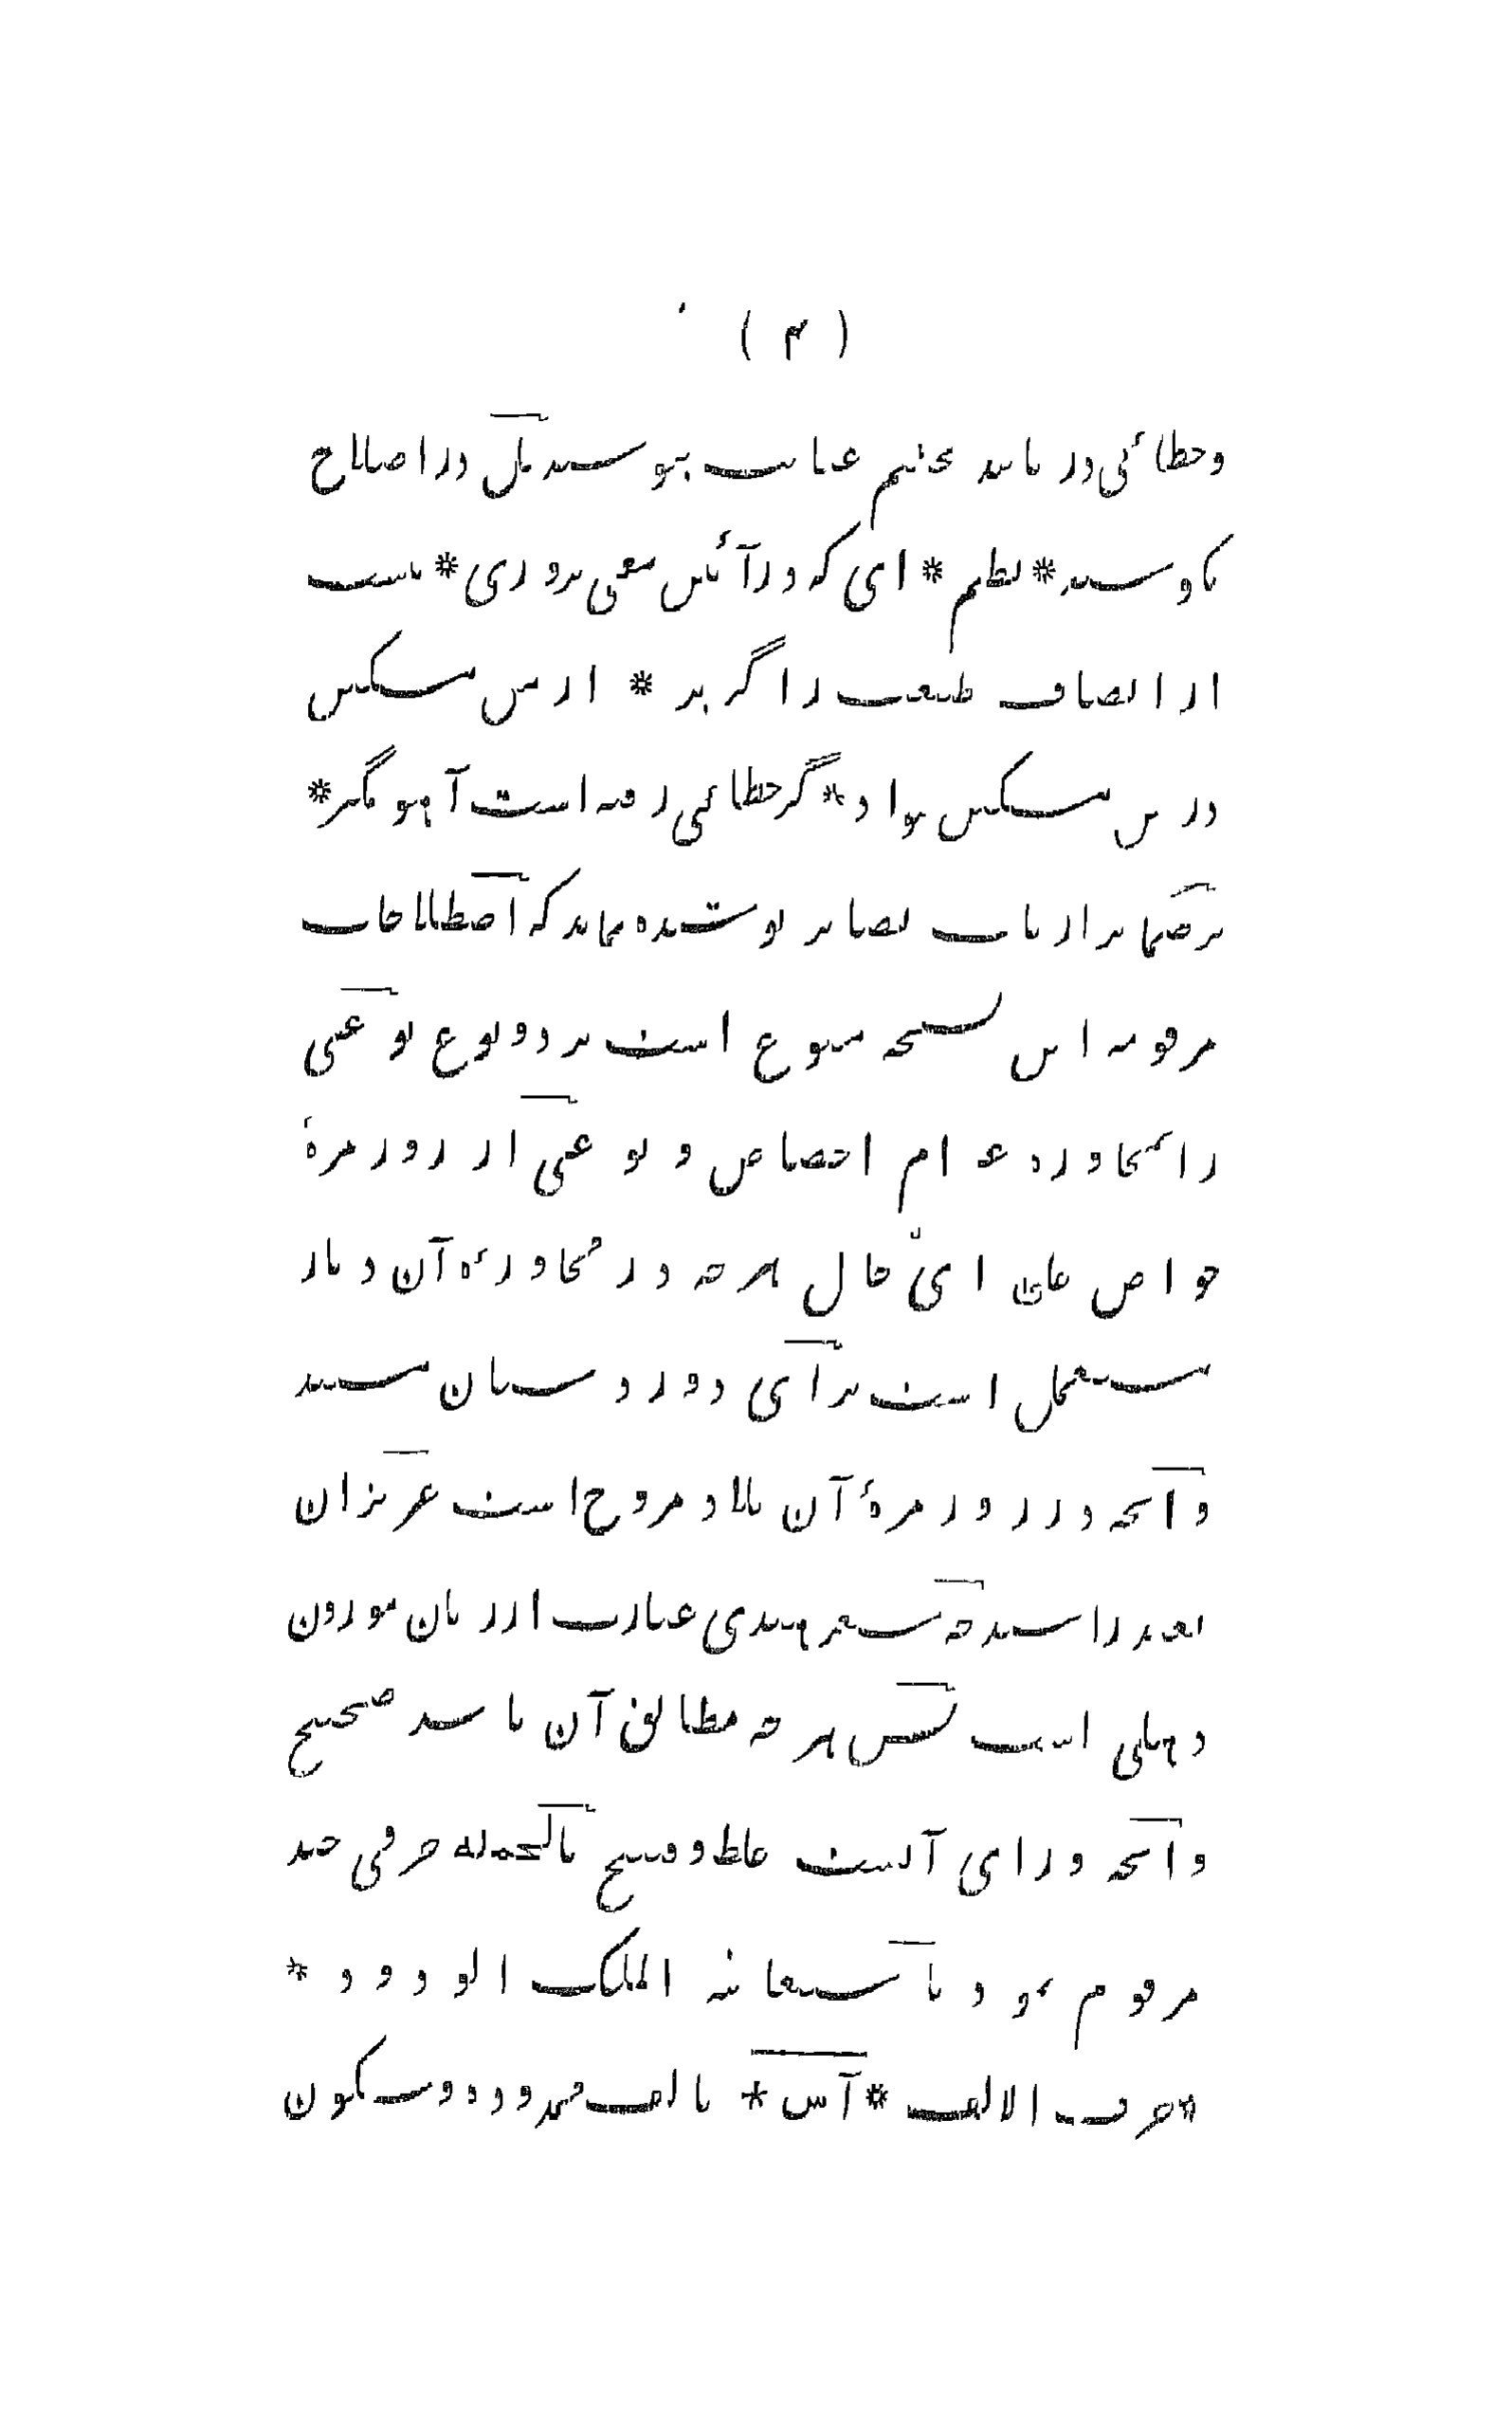 ( ۴ )
وخطائی دریابند بچشم عنایت بپوشند بل در اصلاح
کوشند * نظم * ای که در آئین معنی پروری * نیست
از انصاف طبعت را گریز * از من مسکین
درین مسکین سواد * گر خطائی رفته است آهو مگیر *
برضمایر ارباب بصایر پوشیده نماند که اصطلاحات
مرقومه این نسخه متنوع است بر دو نوع نوعی
را بمحاوره عوام اختصاص و نوعی از روزمرهٔ
خواص علی ای حال هرچه در محاورهٔ آن دیار
مستعمل است برای دور دستان سند
وانچه در روزمرهٔ آن بلاد مروج است عزیزان
بعید را سند چه شعر هندی عبارت از زبان موزون
دهلی است پس هرچه مطابق آن باشد صحیح
وانچه ورای آنست غلط وقبیح بالجمله حرفی چند
مرقوم نمود باستعانة الملک الودود *
* حرف الالف * آس * بالف ممدوده وسکون